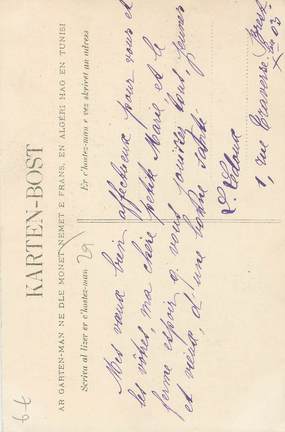 KARTEN-BOST
AR GARTEN-MAN NE DLE MONET NEMET E FRANS, EN ALGÉRI HAG EN TUNISI
Scriva al lizer er c'hostez-man
Er c'hostez-man e vez skrivet an adress
29
Mes vœux bien affectueux pour vous et
les vôtres, ma chère petite Marie et la
ferme espoir q. vous jouirez tous, jeunes
et vieux, d'une bonne santé
L. Leloux
1, rue Traverse Brest
03